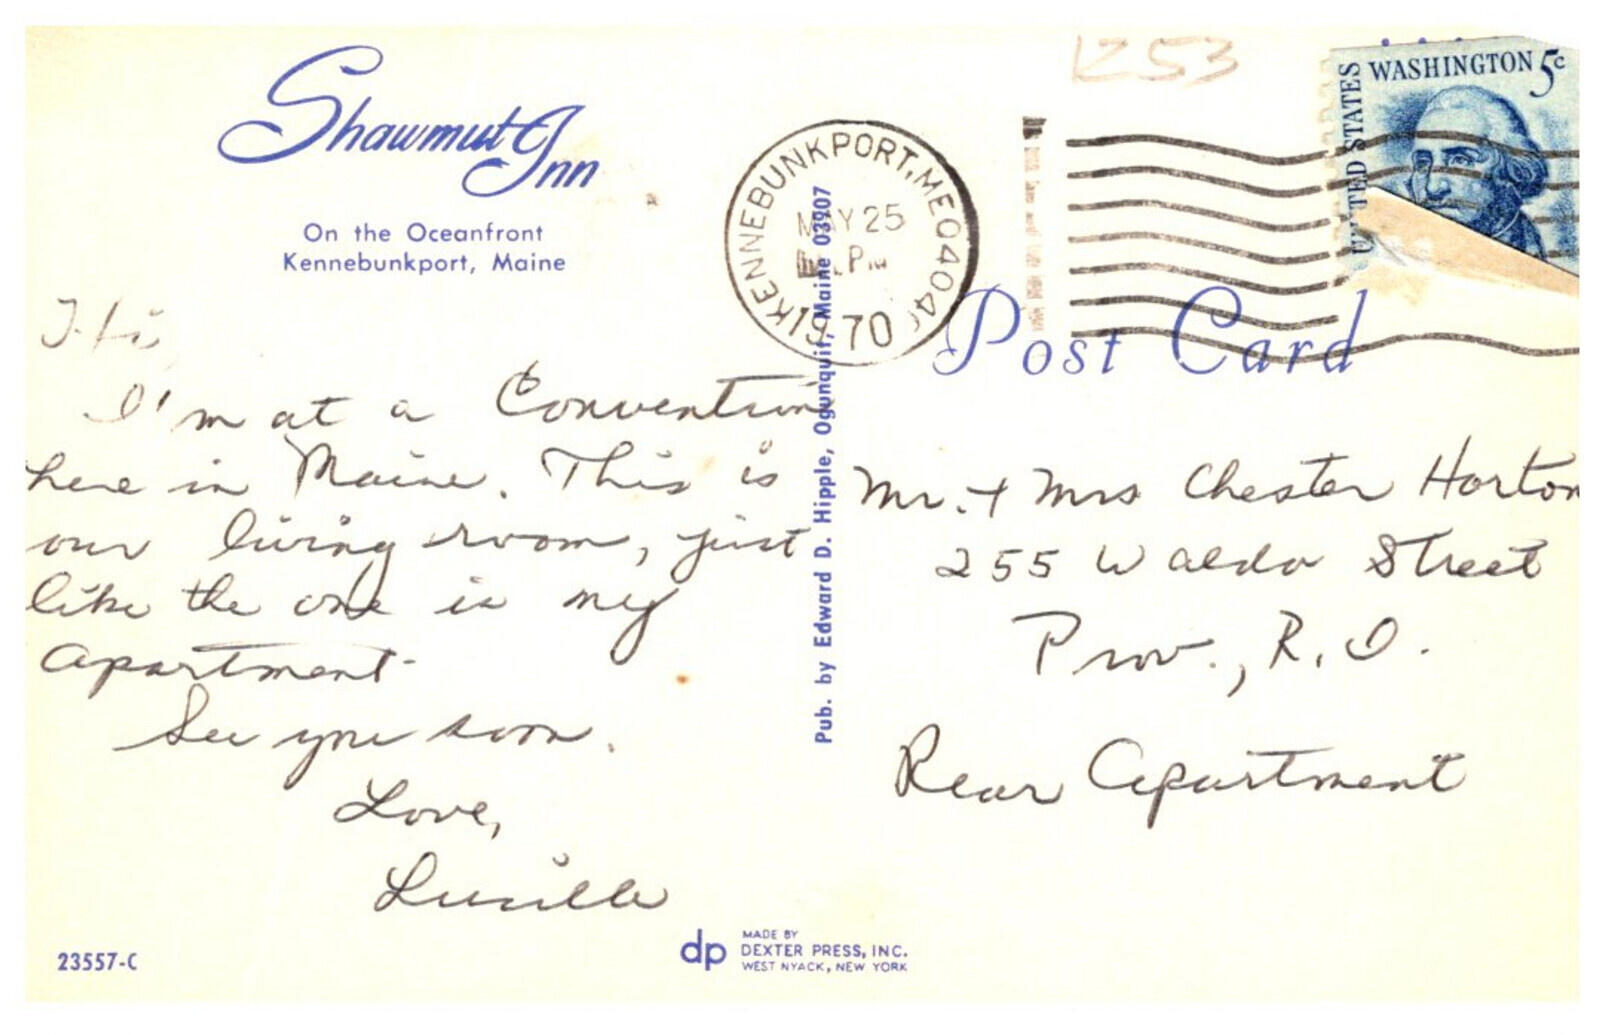 Shawmut Inn
On the Oceanfront
Kennebunkport, Maine
Hi,
I'm at a Convention
here in Maine. This is
our living room, just
like the one in my
apartment.
See you soon.
Love,
Lucille
23557-C
Pub. by Edward D. Hipple, Ogunquit, Maine 03907
dp
MADE BY
DEXTER PRESS, INC.
WEST NYACK, NEW YORK
KENNEBUNKPORT, ME 04046
MAY 25
PM
1970
1253
UNITED STATES
WASHINGTON 5c
Post Card
Mr. + Mrs Chester Horton
255 Waldo Street
Prov., R.I.
Rear Apartment